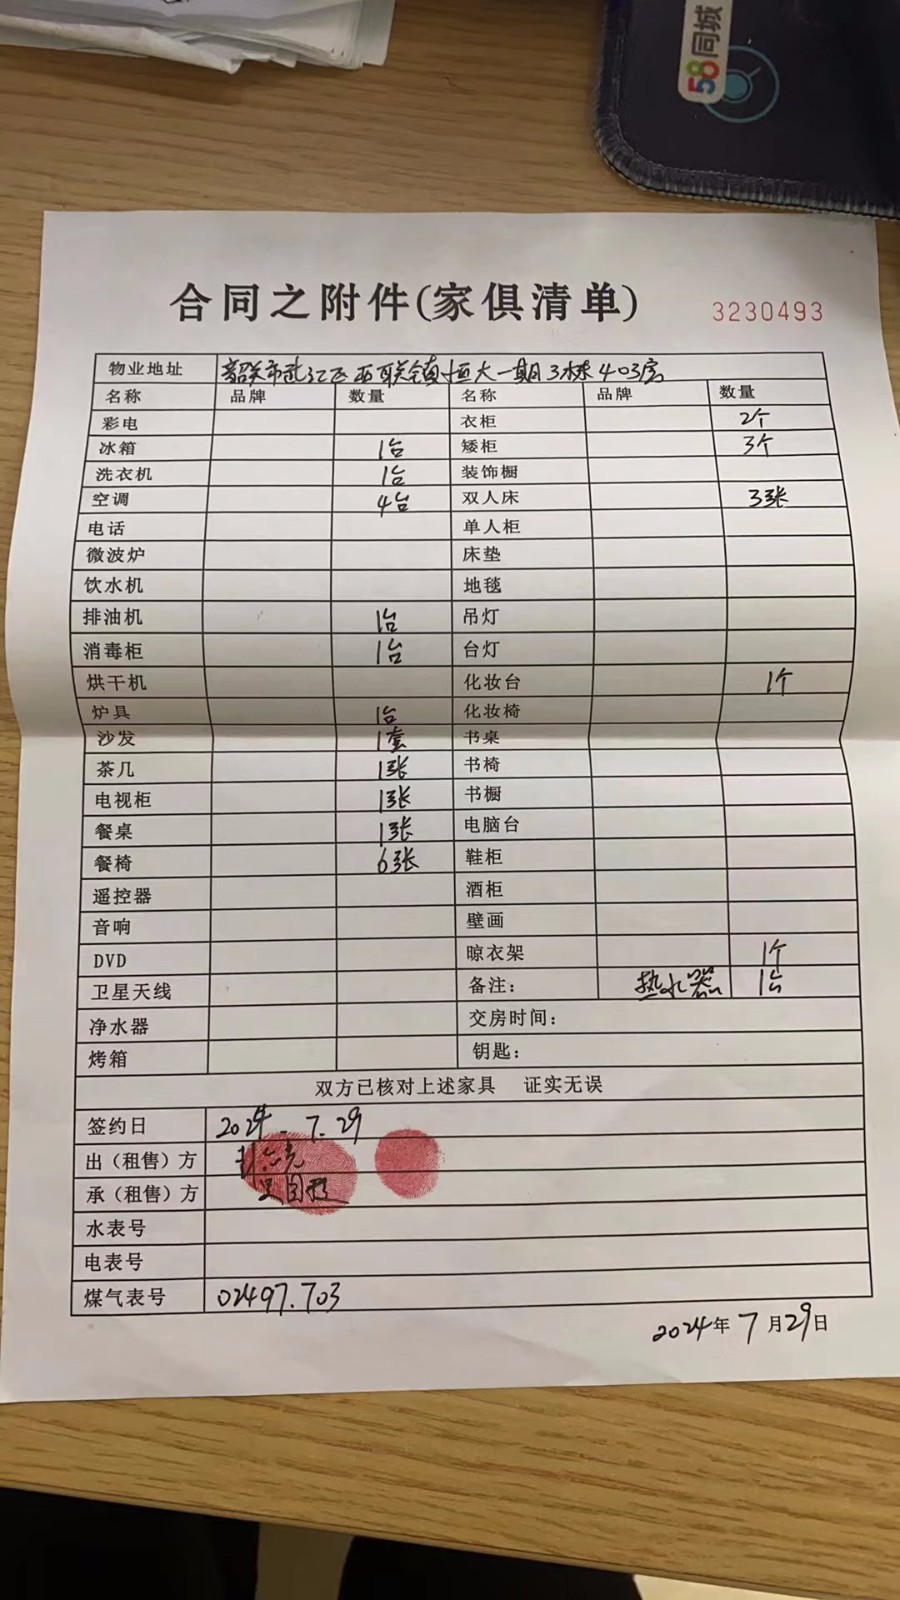 58同城
合同之附件(家俱清单)
3230493
物业地址 韶关市武江区西联镇恒大一期3栋403房
名称 品牌 数量 名称 品牌 数量
彩电 衣柜 2个
冰箱 1台 矮柜 3个
洗衣机 1台 装饰橱
空调 4台 双人床 3张
电话 单人柜
微波炉 床垫
饮水机 地毯
排油机 1台 吊灯
消毒柜 1台 台灯
烘干机 化妆台 1个
炉具 1台 化妆椅
沙发 1套 书桌
茶几 1张 书椅
电视柜 1张 书橱
餐桌 1张 电脑台
餐椅 6张 鞋柜
遥控器 酒柜
音响 壁画
DVD 晾衣架 1个
卫星天线 备注: 热水器 1台
净水器 交房时间:
烤箱 钥匙:
双方已核对上述家具 证实无误
签约日 2024.7.29
出（租售）方
承（租售）方
水表号
电表号
煤气表号 02497.703
2024年7月29日